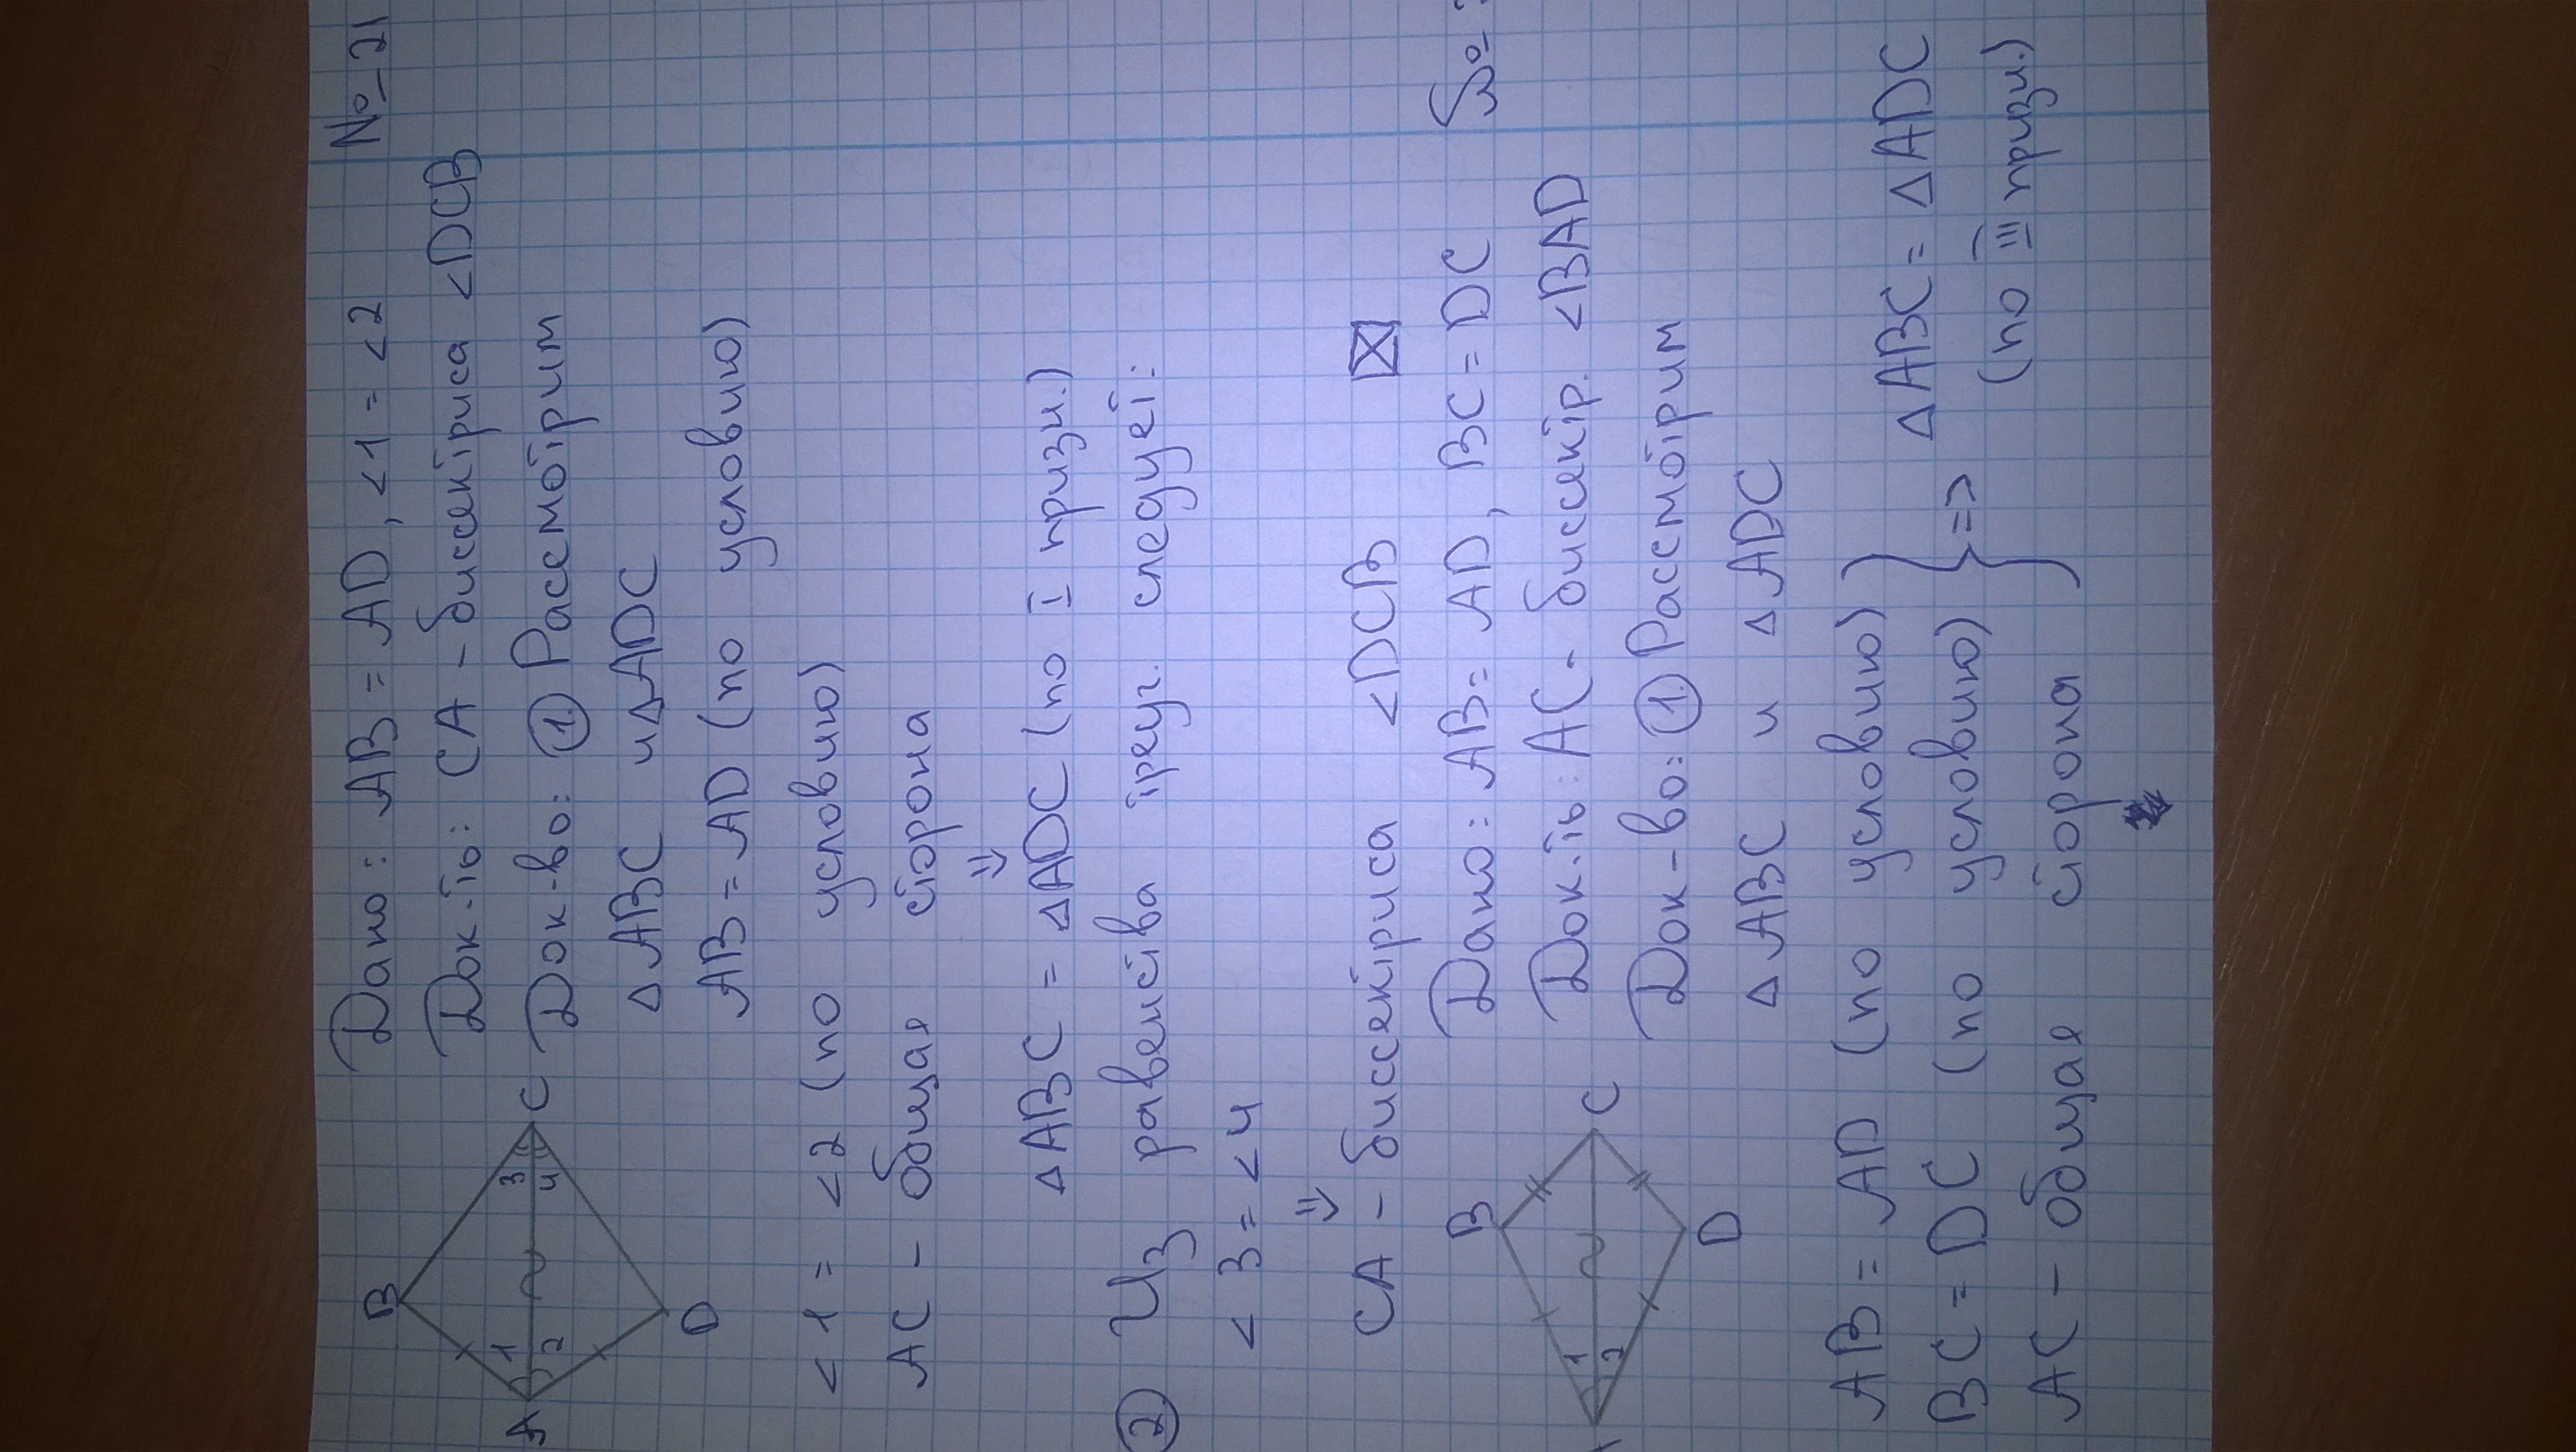 Дано: AB = AD, <1 = <2 № 21
Док-ть: CA - биссектриса <DCB
Док-во: ① Рассмотрим
△ABC и △ADC
AB = AD (по условию)
<1 = <2 (по условию)
AC - общая сторона
⇓
△ABC = △ADC (по I призн.)
② Из равенства треуг. следует:
<3 = <4
⇓
CA - биссектриса <DCB
Дано: AB = AD, BC = DC
Док-ть: AC - биссектр. <BAD
Док-во: ① Рассмотрим
△ABC и △ADC
AB = AD (по условию)
BC = DC (по условию) } => △ABC = △ADC
AC - общая сторона (по III призн.)
A
B
C
D
1
2
3
4
B
C
D
1
2